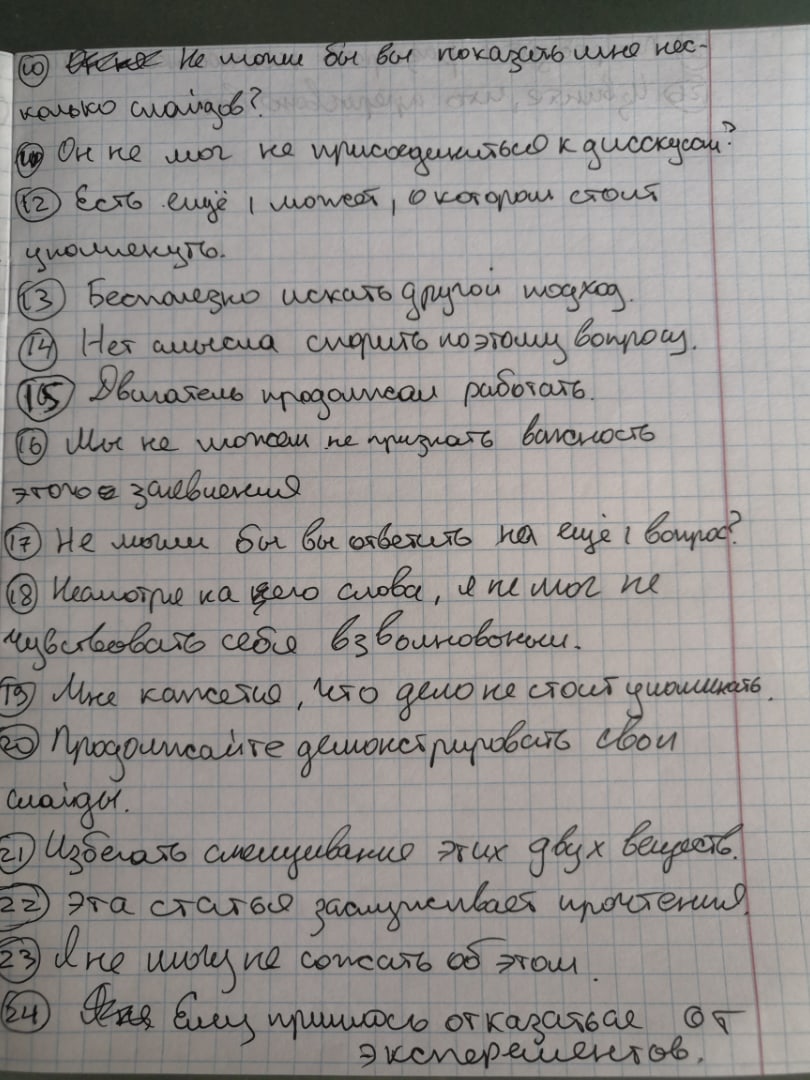 10 Не могли бы вы показать мне нес-
колько слайдов?
11 Он не мог не присоединиться к дисскусси?
12 Есть ещё 1 момент, о котором стоит
упомянуть.
13 Бесполезно искать другой подход.
14 Нет смысла спорить по этому вопросу.
15 Двигатель продолжал работать.
16 Мы не можем не признать важность
этого заявления
17 Не могли бы вы ответить на ещё 1 вопрос?
18 Несмотря на его слова, я не мог не
чувствовать себя взволнованым.
19 Мне кажется, что дело не стоит упоминать.
20 Продолжайте демонстрировать свои
слайды.
21 Избегать смешивания этих двух веществ.
22 Эта статья заслуживает прочтения.
23 Я не могу не сожать об этом.
24 Ему пришлось отказаться от
экспереметов.